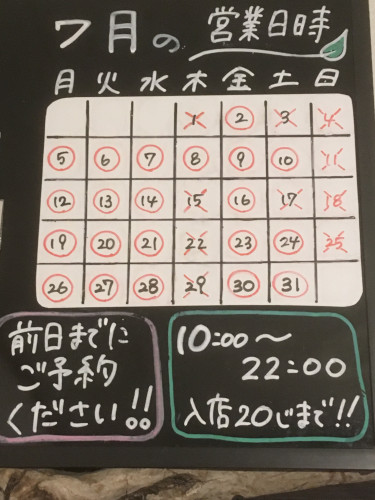 7月の 営業日時
月 火 水 木 金 土 日
1 2 3 4
5 6 7 8 9 10 11
12 13 14 15 16 17 18
19 20 21 22 23 24 25
26 27 28 29 30 31
前日までに
ご予約
ください!!
10:00〜
22:00
入店20じまで!!